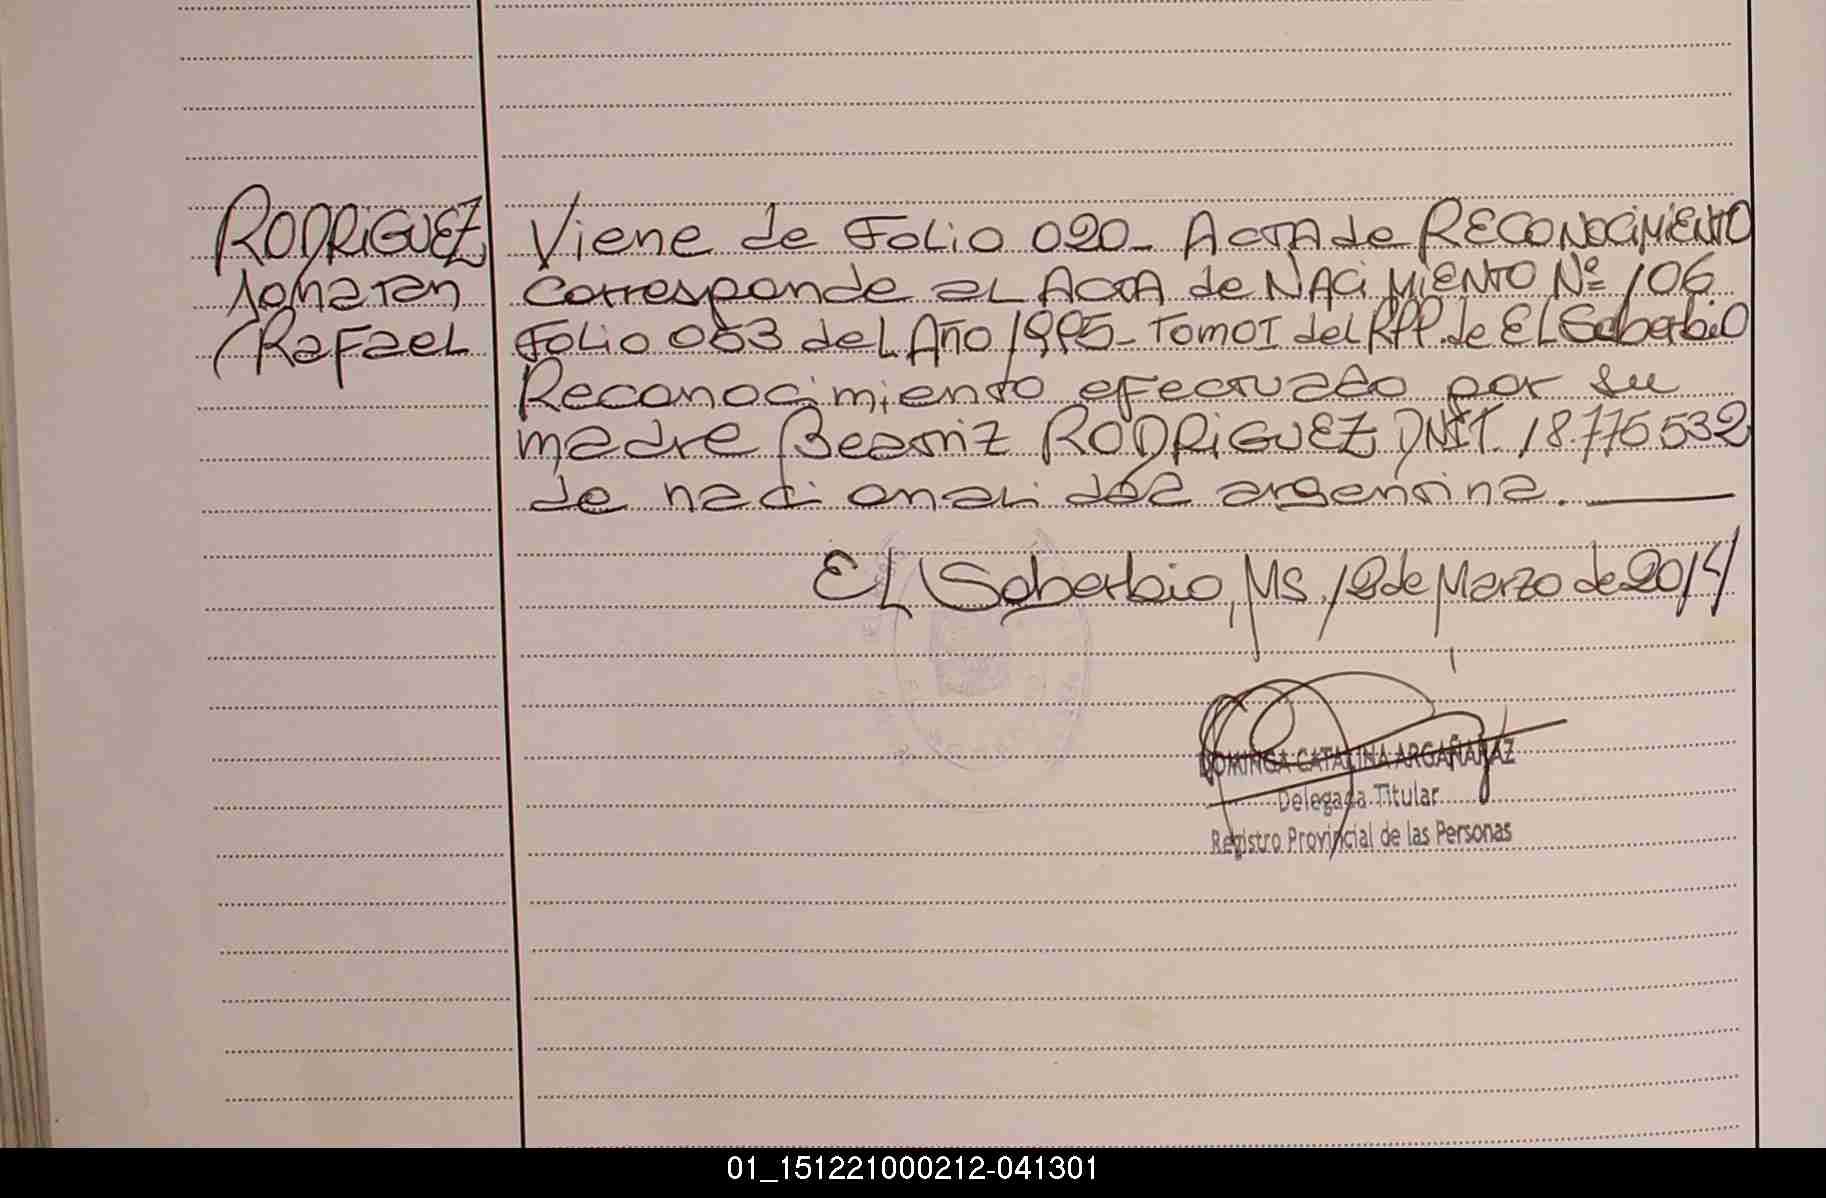 RODRiGUEZ
Jonatan
Rafael
Viene de Folio 020_ ACTA de RECONOCiMiENTO
Corresponde al ACTA de NACiMiENTO Nº 106
Folio 053 del Año 1995_ Tomo I del RPP. de EL Soberbio
Reconocimiento efectuado por su
madre Beatriz RODRiGUEZ, DNI. 18.776.532
de nacionalidad argentina.
EL Soberbio, Ms. 12 de Marzo de 2014
DOMINGA CATALINA ARGAÑARAZ
Delegada Titular
Registro Provincial de las Personas
01_151221000212-041301